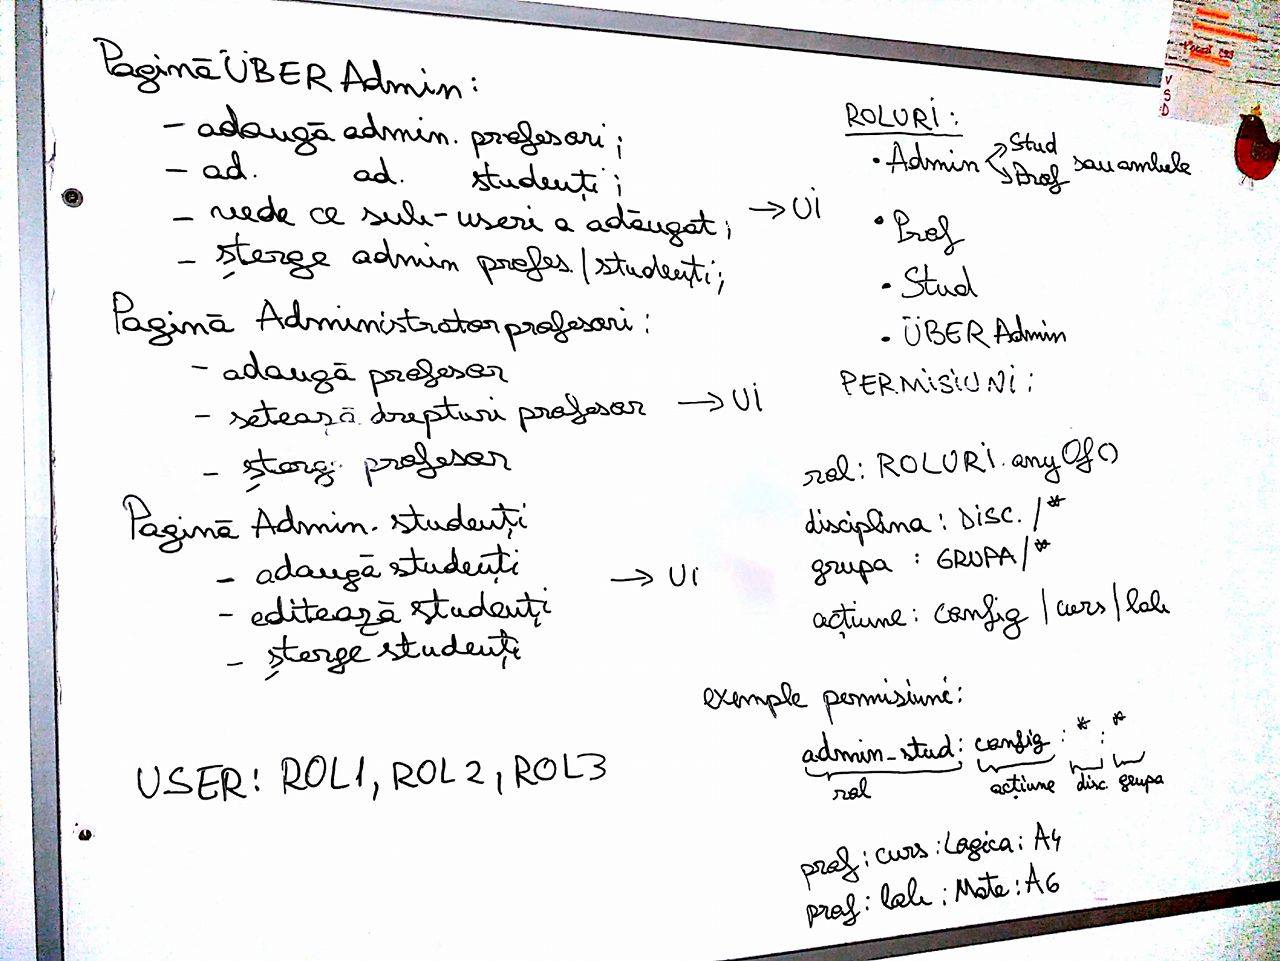 Pagină ÜBER Admin:
- adaugă admin. profesori;
- ad. ad. studenți;
- vede ce sub-useri a adăugat;
- șterge admin profes./studenți;
→ UI
Pagină Administrator profesori:
- adaugă profesor
- setează drepturi profesor
- șterg. profesor
→ UI
Pagină Admin. studenți
- adaugă studenți
- editează studenți
- șterge studenți
→ UI
USER: ROL1, ROL2, ROL3
ROLURI:
• Admin Stud
Prof sau ambele
• Prof
• Stud
• ÜBER Admin
PERMISIUNI:
rol: ROLURI.anyOf()
disciplina: DISC./*
grupa: GRUPA/*
acțiune: config/curs/lab
exemple permisiuni:
admin_stud: config : * : *
rol acțiune disc. grupa
prof: curs: Logica: A4
prof: lab: Mate: A6
V
S
D